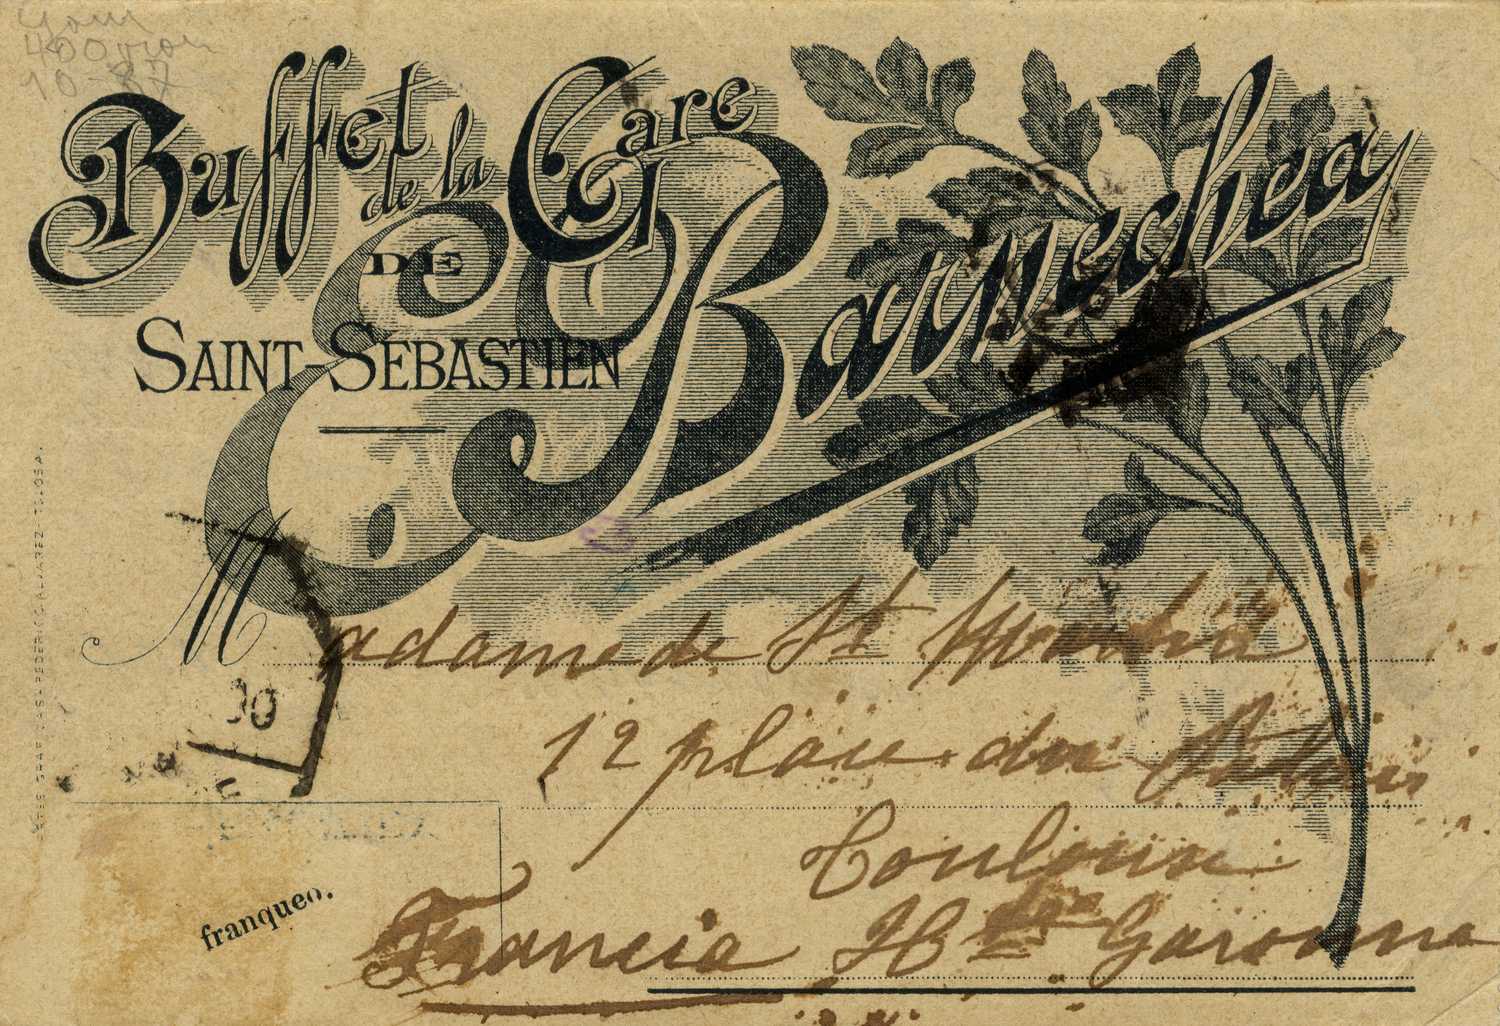 400
10-87
Buffet de la Gare
DE
SAINT-SEBASTIEN
E. Barnechea
Madame de St
12 place du
Toulouse
Francia Hte Garonne
00
franqueo.